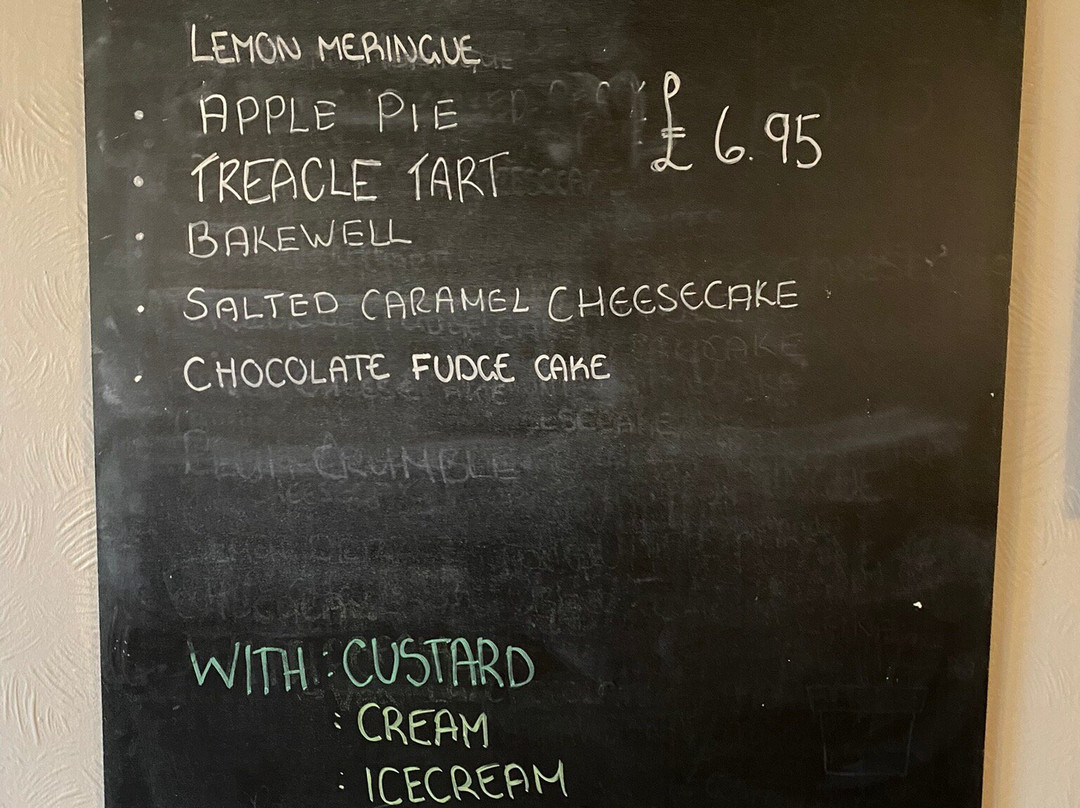 LEMON MERINGUE
• APPLE PIE
£6.95
• TREACLE TART
• BAKEWELL
• SALTED CARAMEL CHEESECAKE
• CHOCOLATE FUDGE CAKE
CRUMBLE
WITH : CUSTARD
: CREAM
: ICECREAM